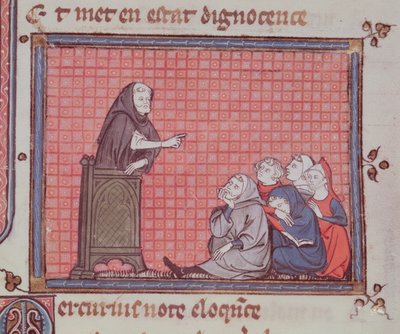 Et met en estat dignocence
Mercurius note eloq̄nce